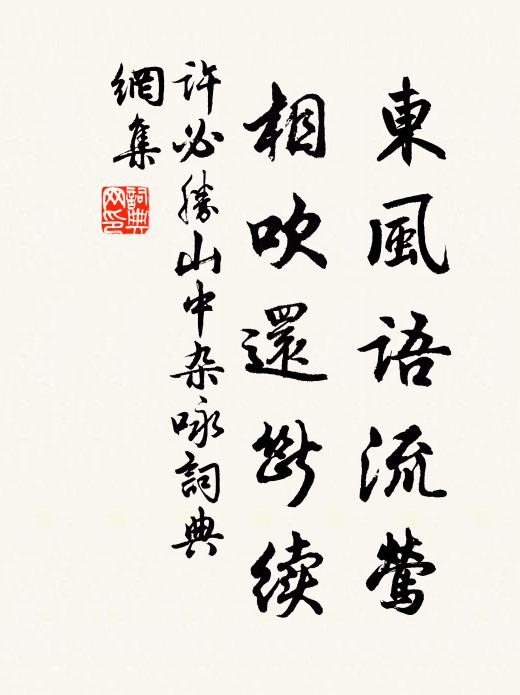 東風語流鶯
相吹還斷续
許必勝山中杂咏詞典
網集
詞典
网印